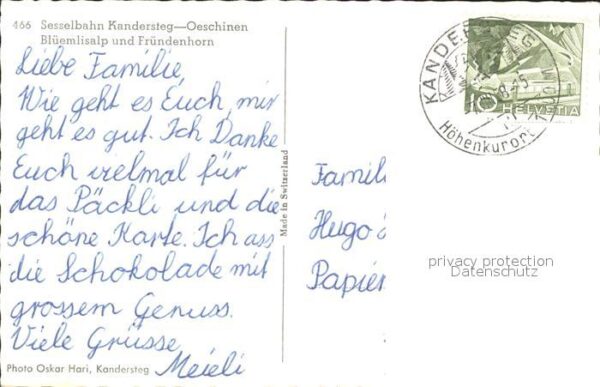 466 Sesselbahn Kandersteg—Oeschinen
Blüemlisalp und Fründenhorn
Liebe Familie,
Wie geht es Euch, mir
geht es gut. Ich Danke
Euch vielmal für
das Päckli und die
schöne Karte. Ich ass
die Schokolade mit
grossem Genuss.
Viele Grüsse
Meieli
Photo Oskar Hari, Kandersteg
Made in Switzerland
KANDERSTEG
Höhenkurort
10 HELVETIA
Famil
Hugo
Papier
privacy protection
Datenschutz